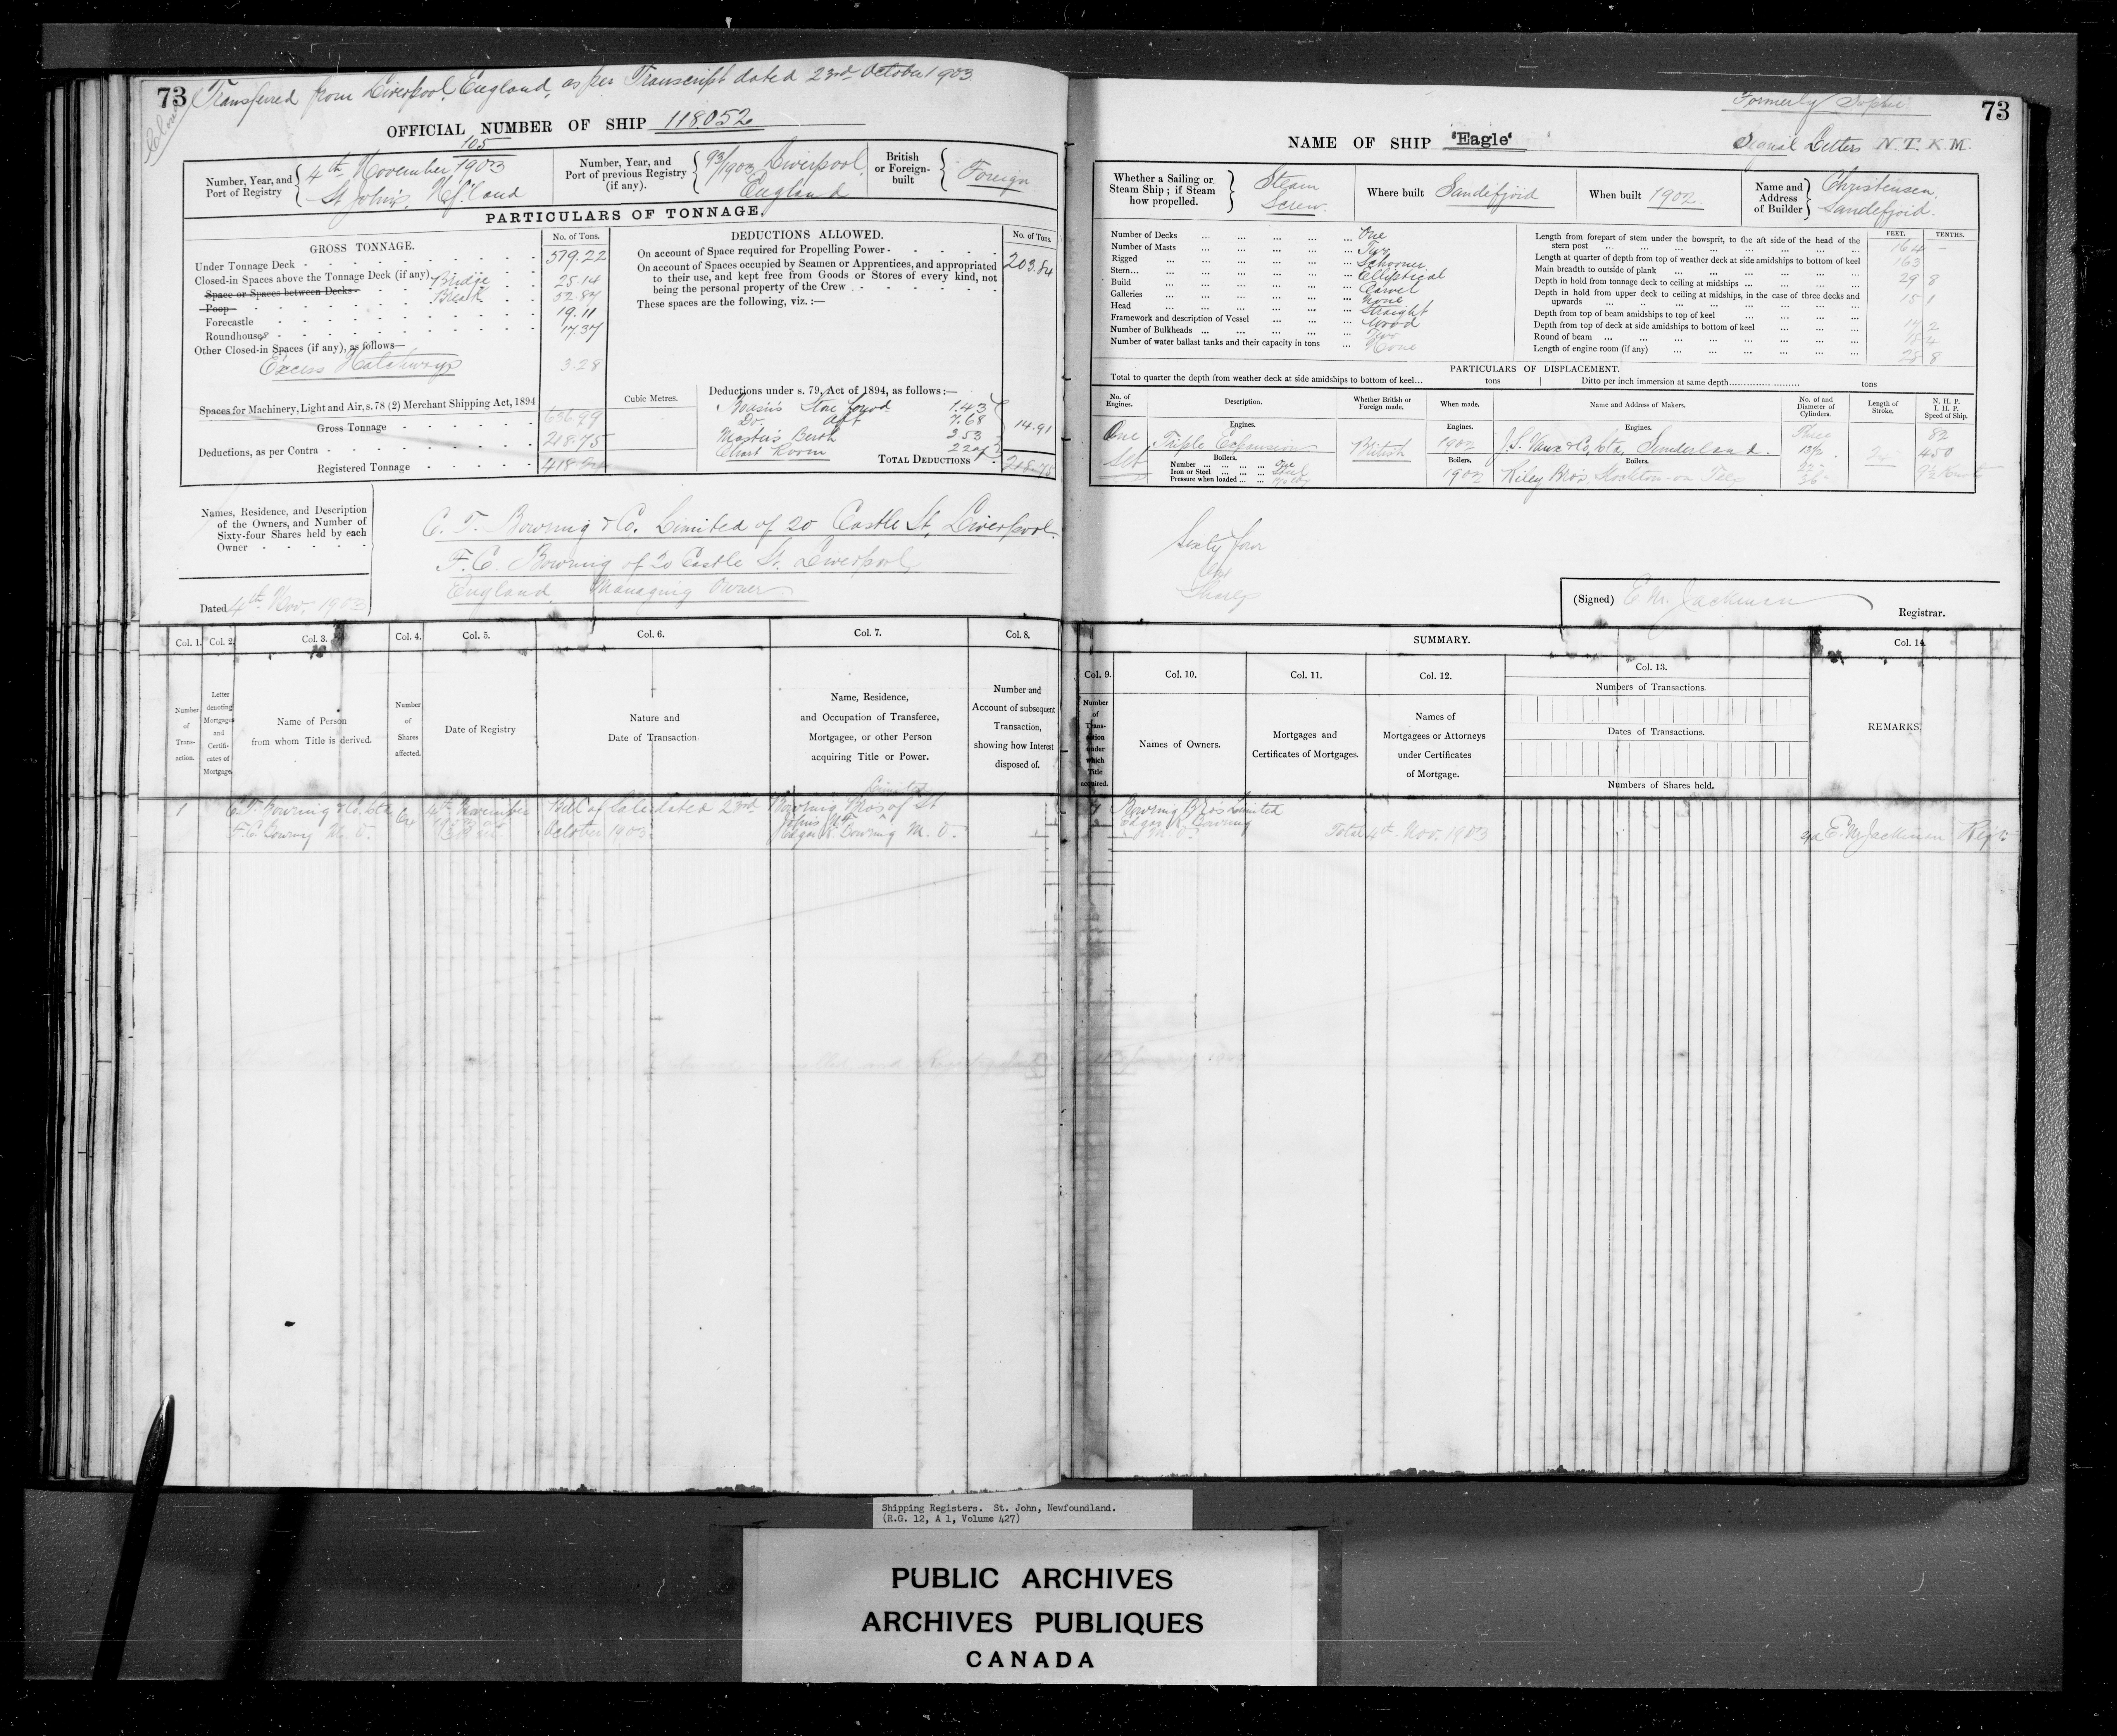 73 Transferred from Liverpool, England, as per Transcript dated 23rd October 1903
OFFICIAL NUMBER OF SHIP 118.052
Number, Year, and Port of Registry
105
4th November 1903
St John's, Nf.land
Number, Year, and Port of previous Registry (if any).
93/1903 Liverpool, England
British or Foreign-built
Foreign
PARTICULARS OF TONNAGE.
GROSS TONNAGE.
No. of Tons.
Under Tonnage Deck 519.22
Closed-in Spaces above the Tonnage Deck (if any) Bridge 25.14
Space or Spaces between Decks Break 52.87
Poop
Forecastle 19.11
Roundhouses 17.37
Other Closed-in Spaces (if any), as follows—
Excess Hatchways 3.28
Spaces for Machinery, Light and Air, s. 78 (2) Merchant Shipping Act, 1894
Gross Tonnage
Deductions, as per Contra 218.75
Registered Tonnage
DEDUCTIONS ALLOWED.
No. of Tons.
On account of Space required for Propelling Power 203.84
On account of Spaces occupied by Seamen or Apprentices, and appropriated
to their use, and kept free from Goods or Stores of every kind, not
being the personal property of the Crew
These spaces are the following, viz. :—
Cubic Metres.
Deductions under s. 79, Act of 1894, as follows :—
Boasn's Store forwd 1.43
Do aft 7.68
Master's Berth 3.53
Chart Room 2.27
14.91
TOTAL DEDUCTIONS 218.75
Names, Residence, and Description
of the Owners, and Number of
Sixty-four Shares held by each
Owner
C. T. Bowring & Co. Limited of 20 Castle St, Liverpool.
F. C. Bowring of 20 Castle St. Liverpool,
England, Managing Owner
Dated 4th Nov. 1903
Col. 1. Col. 2. Col. 3. Col. 4. Col. 5. Col. 6. Col. 7. Col. 8.
Number of Transaction.
Letter denoting Mortgages and Certificates of Mortgage.
Name of Person from whom Title is derived.
Number of Shares affected.
Date of Registry
Nature and Date of Transaction
Name, Residence, and Occupation of Transferee, Mortgagee, or other Person acquiring Title or Power.
Number and Account of subsequent Transaction, showing how Interest disposed of.
1 C. T. Bowring & Co. Ltd 64 4th November Bill of Sale dated 23rd Bowring Bros Limited of St
F. C. Bowring M. O. October 1903. John's NF Edgar R. Bowring M. O.
Formerly Sophie
73
NAME OF SHIP 'Eagle'
Signal Letters N.T.K.M.
Whether a Sailing or Steam Ship ; if Steam how propelled.
Steam Screw.
Where built Sandefjord
When built 1902.
Name and Address of Builder
Christensen, Sandefjord.
Number of Decks One
Number of Masts Two
Rigged Schooner
Stern Elliptical
Build Carvel
Galleries None
Head Straight
Framework and description of Vessel Wood
Number of Bulkheads Two
Number of water ballast tanks and their capacity in tons None
FEET. TENTHS.
Length from forepart of stem under the bowsprit, to the aft side of the head of the stern post 164 –
Length at quarter of depth from top of weather deck at side amidships to bottom of keel 163
Main breadth to outside of plank 29 8
Depth in hold from tonnage deck to ceiling at midships 15 1
Depth in hold from upper deck to ceiling at midships, in the case of three decks and upwards
Depth from top of beam amidships to top of keel 17 2
Depth from top of deck at side amidships to bottom of keel 18 4
Round of beam
Length of engine room (if any) 28 8
PARTICULARS OF DISPLACEMENT.
Total to quarter the depth from weather deck at side amidships to bottom of keel tons
Ditto per inch immersion at same depth tons
No. of Engines.
Description.
Whether British or Foreign made.
When made.
Name and Address of Makers.
No. of and Diameter of Cylinders.
Length of Stroke.
N. H. P.
I. H. P.
Speed of Ship.
One Set
Engines.
Triple Expansion
British
Engines. 1902
Engines.
J. S. Vaux & Co, Ltd, Sunderland.
Three
13½
22
36
82
450
9½ Knots
Boilers.
Number One
Iron or Steel Steel
Pressure when loaded
Boilers. 1902
Boilers.
Riley Bros, Stockton-on Tees
Sixty four
Shares
(Signed) E. M. Jackman
Registrar.
SUMMARY.
Col. 9. Col. 10. Col. 11. Col. 12. Col. 13. Col. 14.
Number of Transaction under which Title acquired.
Names of Owners.
Mortgages and Certificates of Mortgages.
Names of Mortgagees or Attorneys under Certificates of Mortgage.
Numbers of Transactions.
Dates of Transactions.
Numbers of Shares held.
REMARKS.
Bowring Bros Limited
Edgar R. Bowring
M. O.
Total 4th Nov. 1903
sgd E. M. Jackman Regr.
Shipping Registers. St. John, Newfoundland.
(R.G. 12, A 1, Volume 427)
PUBLIC ARCHIVES
ARCHIVES PUBLIQUES
CANADA